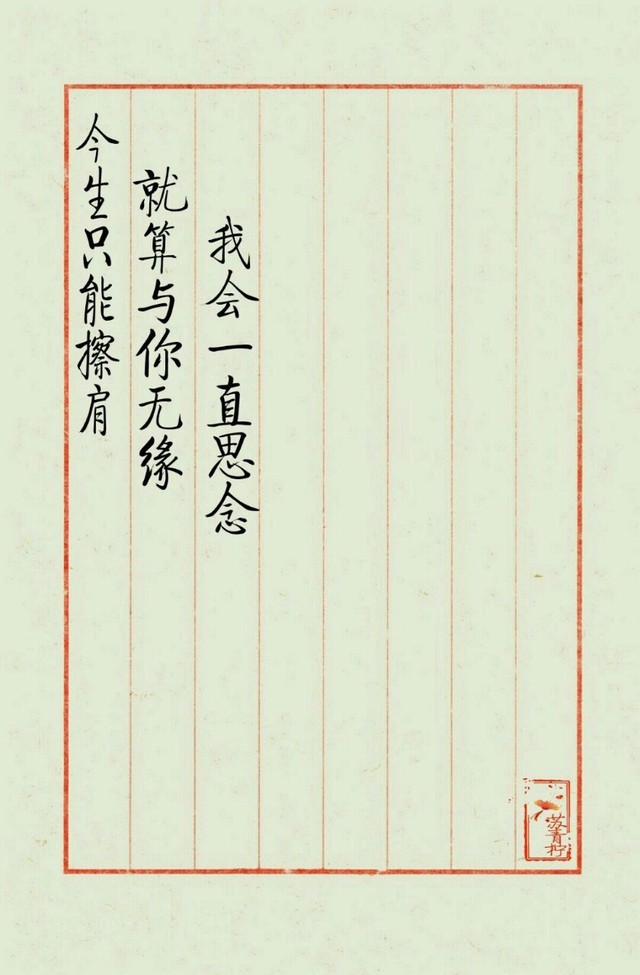 今生只能擦肩
就算与你无缘
我会一直思念
苏青柠